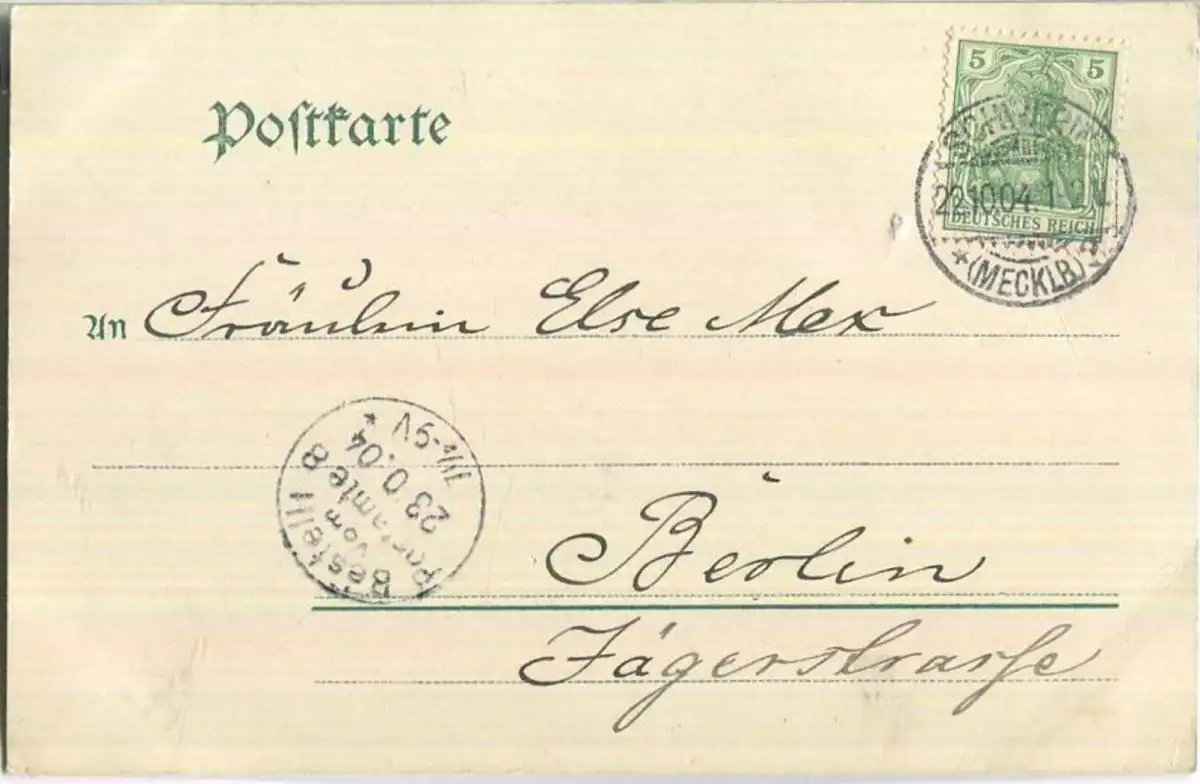 Postkarte
5 5
DEUTSCHES REICH
22.10.04. 1-2 N
(MECKLB)
An Fräulein Else Mex
Bestellt
vom
Postamte 8
23 0.04
7¼-9V
Berlin
Jägerstrasse